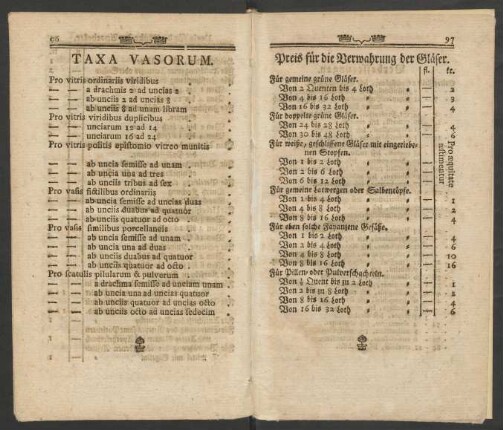 96
TAXA VASORUM.
Pro vitris ordinariis viridibus
— — a drachmis 2 ad uncias 2
— — ab unciis 2 ad uncias 8
— — ab unciis 8 ad unam libram
Pro vitris viridibus duplicibus
— — unciarum 12 ad 14
— — unciarum 16 ad 24
Pro vitris politis epistomio vitreo munitis
— — ab uncia semisse ad unam
— — ab uncia una ad tres
— — ab unciis tribus ad sex
Pro vasis fictilibus ordinariis
— — ab uncia semisse ad uncias duas
— — ab unciis duabus ad quatuor
— — ab unciis quatuor ad octo
Pro vasis similibus porcellaneis
— — ab uncia semisse ad unam
— — ab uncia una ad duas
— — ab unciis duabus ad quatuor
— — ab unciis quatuor ad octo
Pro scatulis pilularum & pulverum
— — a drachma semisse ad unciam unam
— — ab uncia una ad uncias quatuor
— — ab unciis quatuor ad uncias octo
— — ab unciis octo ad uncias sedecim
97
Preis für die Verwahrung der Gläser.
fl. kr.
Für gemeine grüne Gläser.
Von 2 Quenten bis 4 Loth — 2
Von 4 bis 16 Loth — 3
Von 16 bis 32 Loth — 4
Für doppelte grüne Gläser.
Von 24 bis 28 Loth — 4
Von 30 bis 48 Loth — 6
Für weiße, geschliffene Gläser mit eingeriebenen Stopfen.
Von 1 bis 2 Loth
Von 2 bis 6 Loth
Von 6 bis 12 Loth
Pro qualitate æstimentur
Für gemeine Latwergen oder Salbentöpfe.
Von 1 bis 4 Loth — 1
Von 4 bis 8 Loth — 2
Von 8 bis 16 Loth — 4
Für eben solche Fayanzene Gefäße.
Von 1 bis 2 Loth — 4
Von 2 bis 4 Loth — 6
Von 4 bis 8 Loth — 10
Von 8 bis 16 Loth — 16
Für Pillen- oder Pulverschachteln.
Von ½ Quent bis zu 2 Loth — 1
Von 2 bis zu 8 Loth — 2
Von 8 bis 16 Loth — 4
Von 16 bis 32 Loth — 6